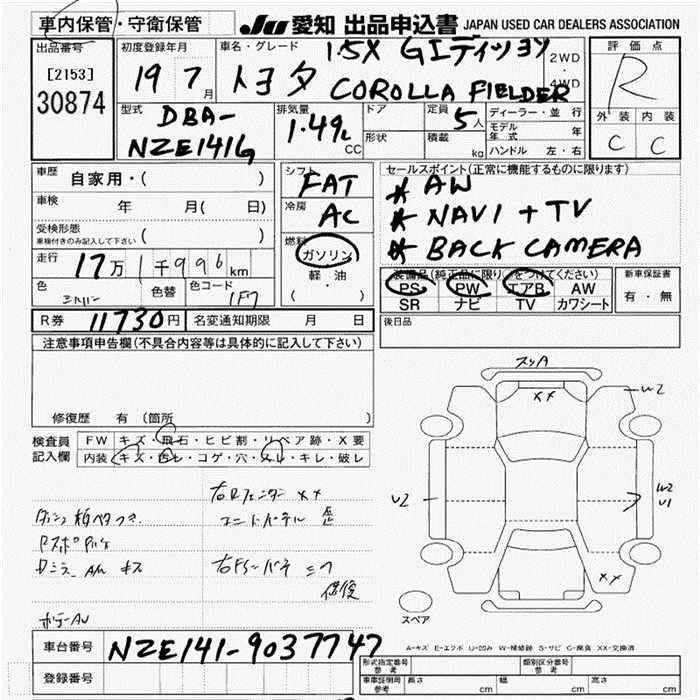 車内保管・守衛保管
JU 愛知 出品申込書 JAPAN USED CAR DEALERS ASSOCIATION
出品番号
[2153]
30874
初度登録年月
19 7 月
車名・グレード
1.5X Gエディション
トヨタ COROLLA FIELDER
2WD
・
4WD
評価点
R
外装 内装
C C
型式
DBA-
NZE141G
排気量
1.49L
CC
ドア
形状
定員
5人
積載
kg
ディーラー・並行
モデル年式 年
ハンドル 左・右
車歴
自家用・( )
車検
年 月( 日)
受検形態
車検付きのみ記入して下さい ( )
走行
17万1千996km
色
シルバー
色替
色コード
1F7
シフト
FAT
冷房
AC
燃料
ガソリン
軽・油
( ・ )
セールスポイント(正常に機能するものに限ります)
* AW
* NAVI + TV
* BACK CAMERA
装備品(純正品に限り○をつけてください)
PS PW エアB AW
SR ナビ TV カワシート
新車保証書
有・無
R券 11730円 名変通知期限 月 日
後日品
注意事項申告欄(不具合内容等は具体的に記入して下さい)
修復歴 有 (箇所 )
検査員
記入欄
FW キズ・飛石・ヒビ割・リペア跡・X要
内装 キズ・汚レ・コゲ・穴・スレ・キレ・破レ
右Rフェンダー XX
エンドパネル 歪
修復
スリA
XX
W2
U2
W2
U1
XX
スペア
車台番号 NZE141-9037747
登録番号
A-キズ E-エクボ U-凹み W-補修跡 S-サビ C-腐食 XX-交換済
形式指定番号
参考
類別区分番号
参考
車庫証明用
参考
長さ cm 幅 cm 高さ cm